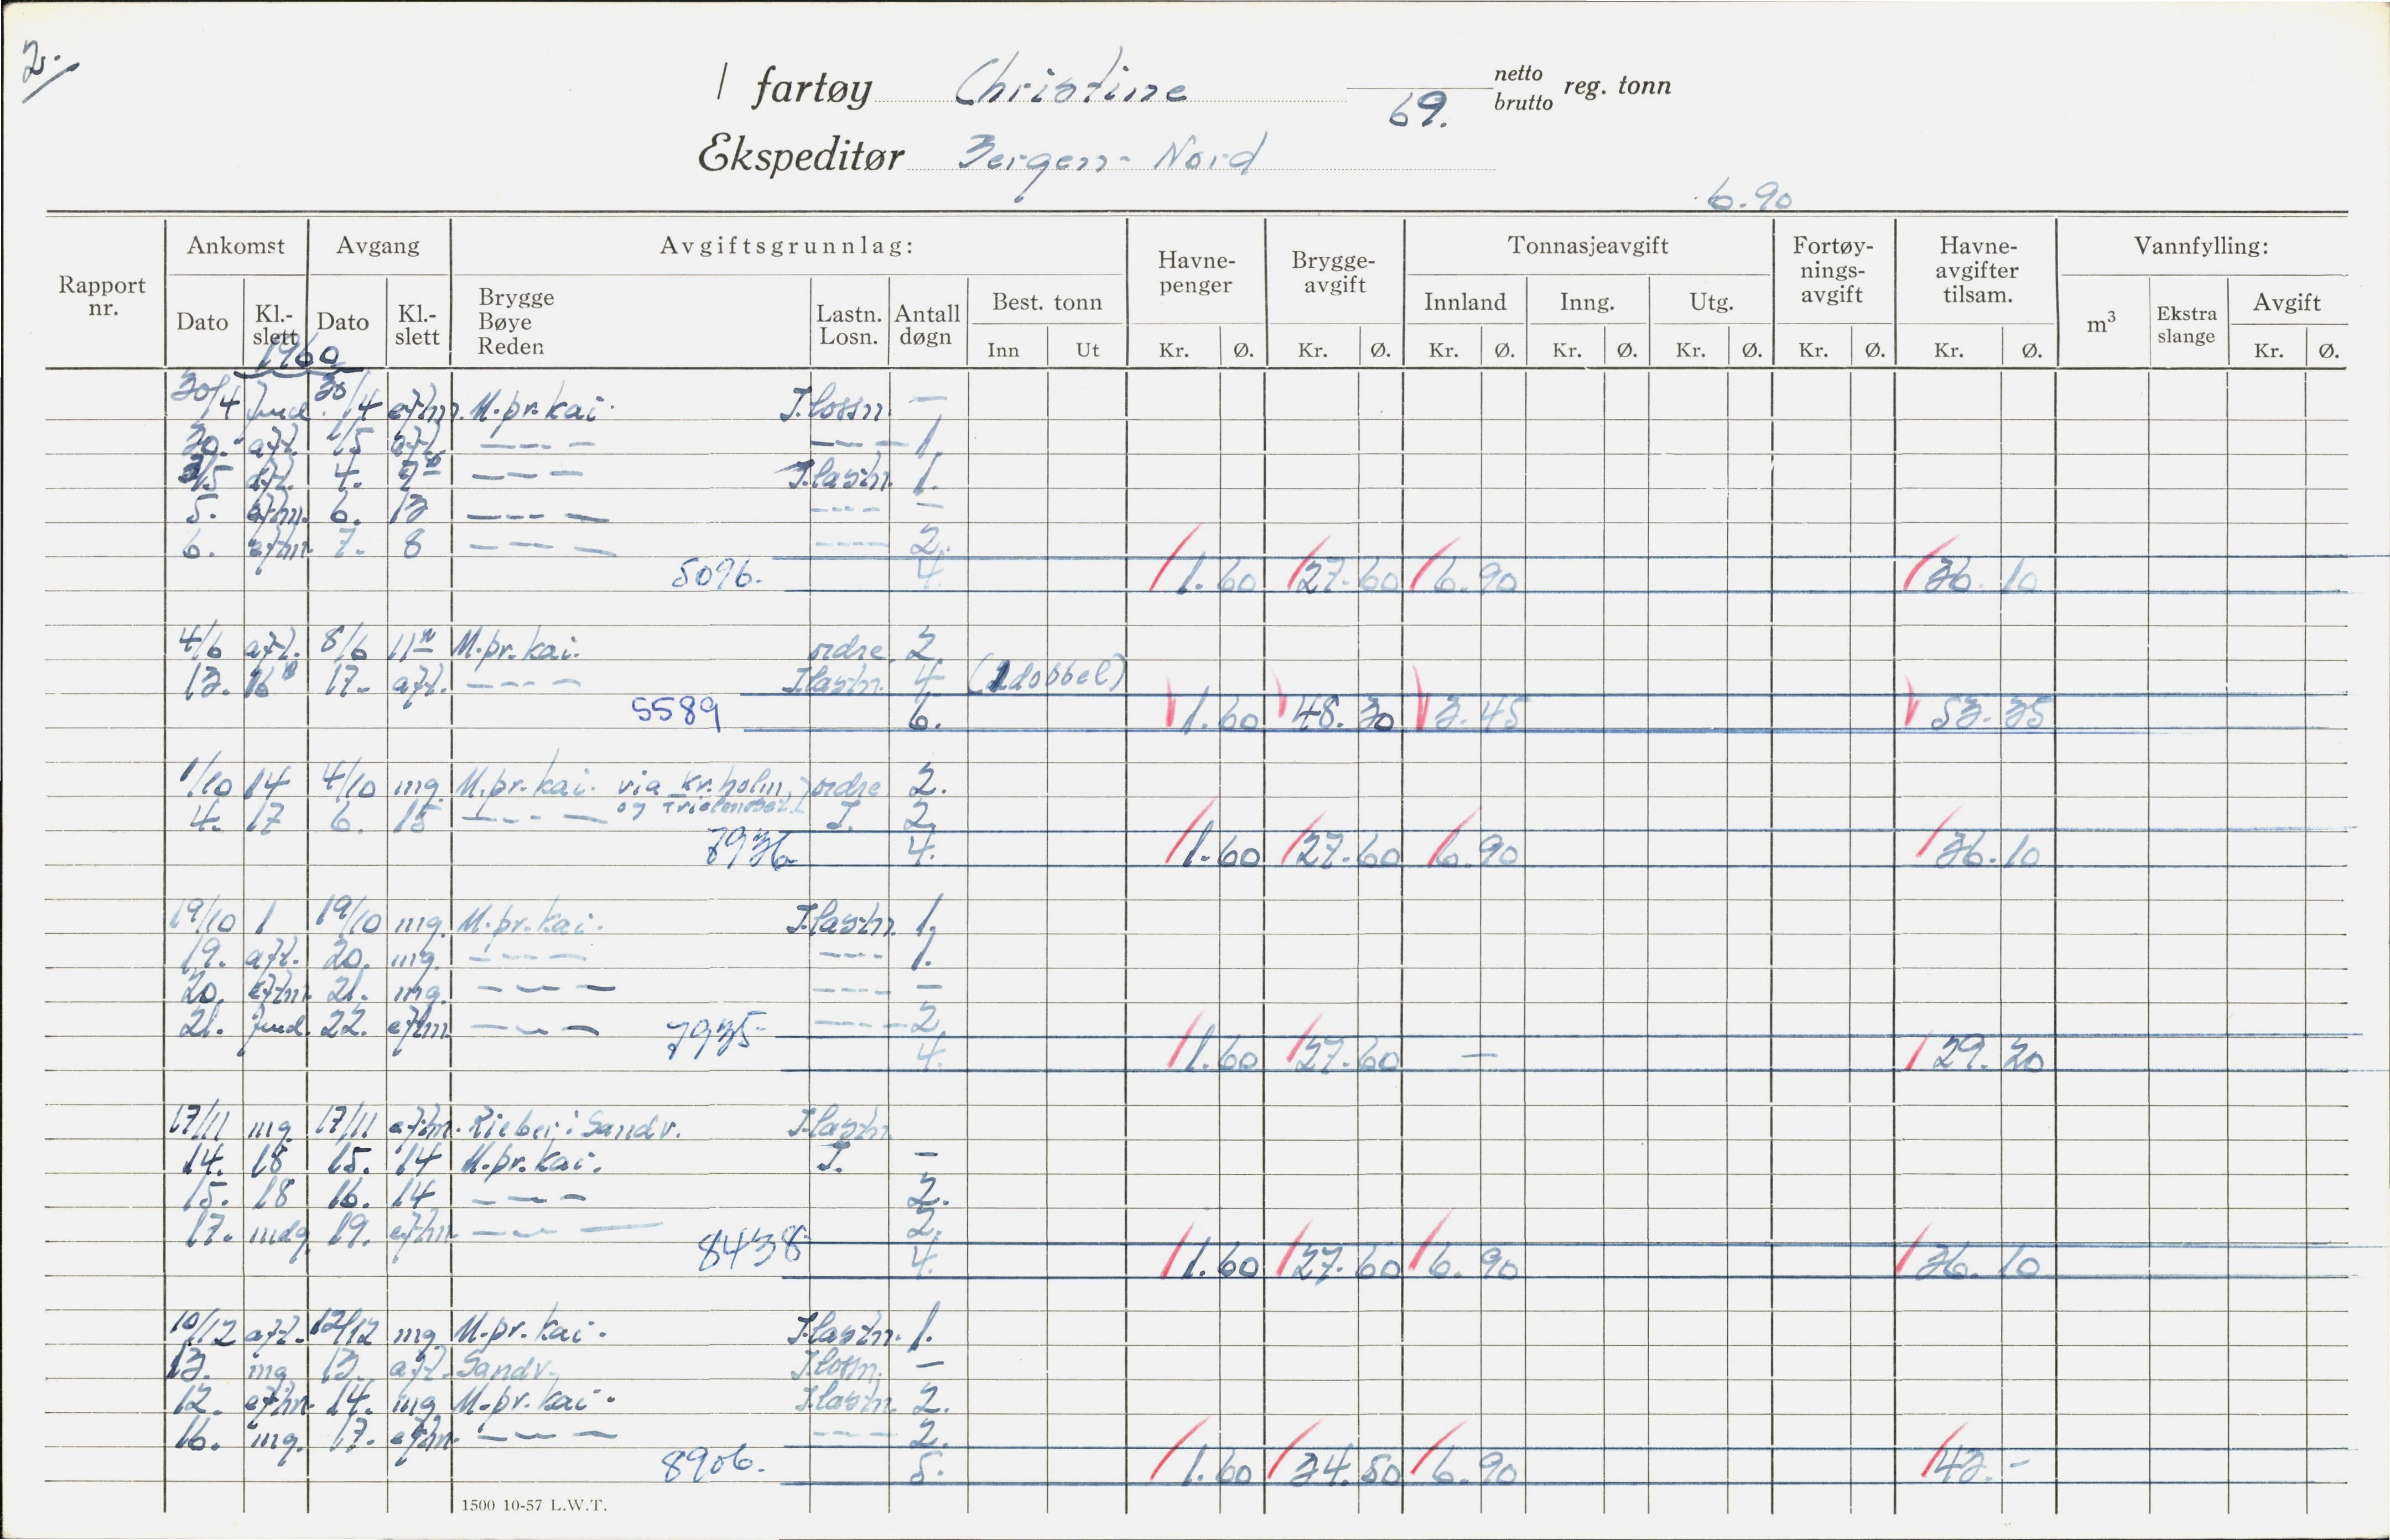 2.
I fartøy Christine 69. netto brutto reg. tonn
Ekspeditør Bergen-Nord
6.90
Rapport nr. Ankomst Avgang Avgiftsgrunnlag: Havnepenger Bryggeavgift Tonnasjeavgift Fortøyningsavgift Havneavgifter tilsam. Vannfylling:
Dato Kl.-slett Dato Kl.-slett Brygge Bøye Reden Lastn. Losn. Antall døgn Best. tonn Innland Inng. Utg. m³ Ekstra slange Avgift
Inn Ut Kr. Ø. Kr. Ø. Kr. Ø. Kr. Ø. Kr. Ø. Kr. Ø. Kr. Ø. Kr. Ø.
1960
30/4 fmd. 30/4 eftm. M.pr.kai. I.lossn. —
30. aft. 1/5 aft. — — — — — — 1.
3/5 aft. 4. — — — I.lastn. 1.
5. eftm. 6. 13 — — — — — — —
6. eftm. 7. 8 — — — — — — 2.
5096. 4. 1.60 27.60 6.90 36.10
4/6 aft. 8/6 11 M.pr.kai. ordre 2.
13. 16 17. aft. — — — I.lastn. 4 (1 dobbel)
5589 6. 1.60 48.30 3.45 53.35
1/10 14 4/10 mg. M.pr.kai. via Kr.holm, ordre 2.
og
4. 17 6. 15 — — — I. 2.
7936 4. 1.60 27.60 6.90 36.10
19/10 1 19/10 mg. M.pr.kai. I.lastn. 1.
19. aft. 20. mg. — — — — — — 1.
20. eftm. 21. mg. — — — — — — —
21. fmd. 22. eftm. — — — — — — 2.
7935. 4. 1.60 27.60 — 29.20
17/11 mg. 17/11 eftm. Rieber i Sandv. I.lastn.
14. 18 15. 14 M.pr.kai. I. —
15. 18 16. 14 — — — 2.
17. mdg 19. eftm. — — — 2.
8438 4. 1.60 27.60 6.90 36.10
10/12 aft. 12/12 mg. M.pr.kai. I.lastn. 1.
13. mg. 13. aft. Sandv. I.lossn. —
12. eftm. 14. mg. M.pr.kai. I.lastn. 2.
16. mg. 17. eftm. — — — — — — 2.
8906. 5. 1.60 34.50 6.90 43.-
1500 10-57 L.W.T.